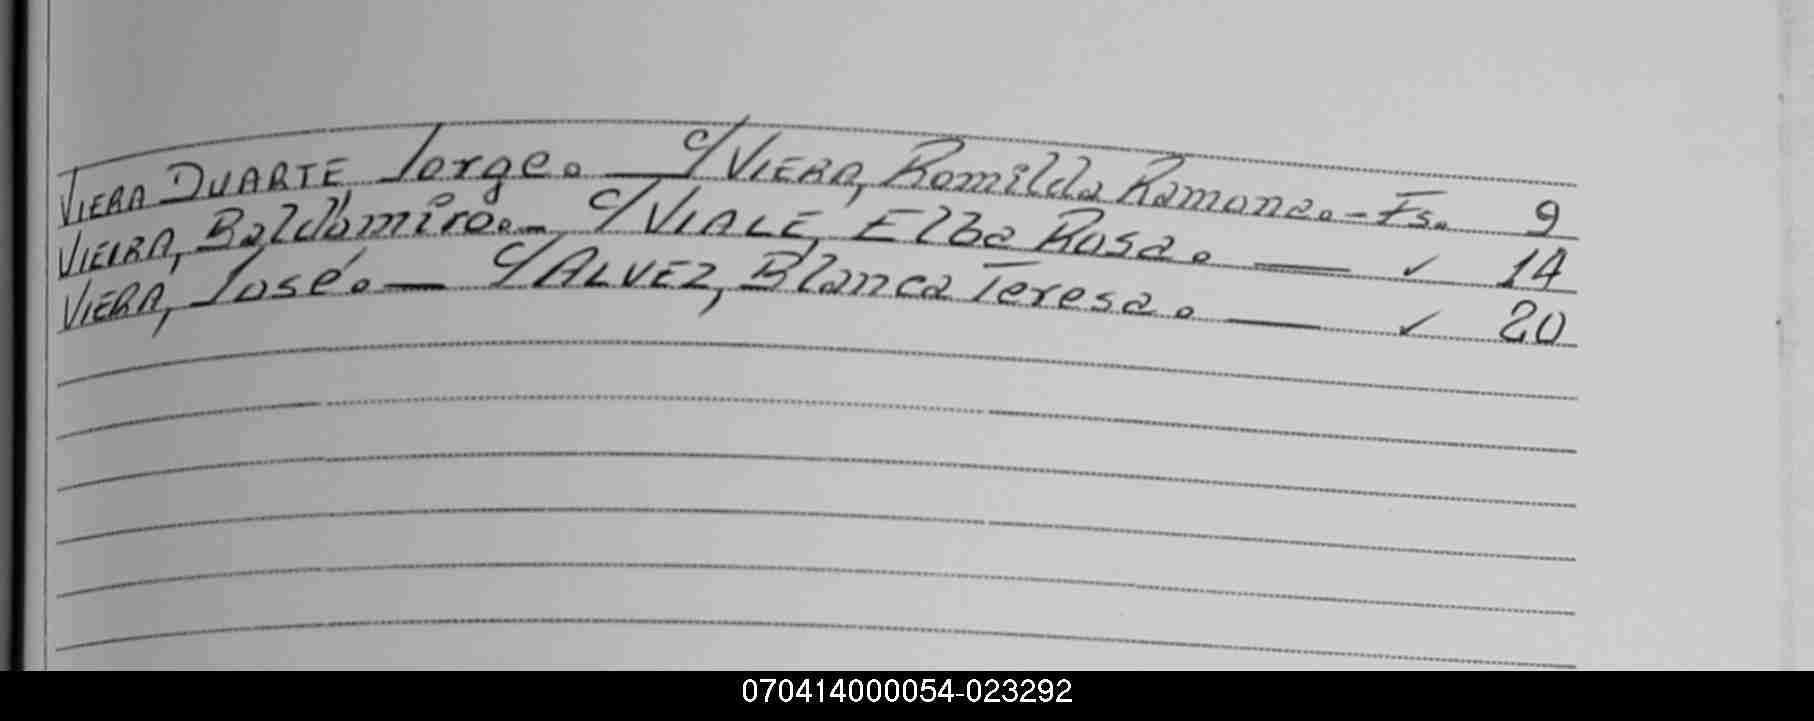 VIERA DUARTE, Jorge. — c/ VIERA, Romilda Ramona. - Fs. 9
VIEIRA, Baldomiro. - c/ VIALE, Elba Rosa. — ✓ 14
VIERA, José. — c/ ALVEZ, Blanca Teresa. — ✓ 20
070414000054-023292